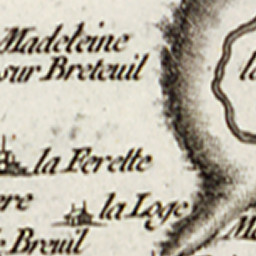 Madeleine
sur Breteuil
la Ferette
la Loge
Breuil